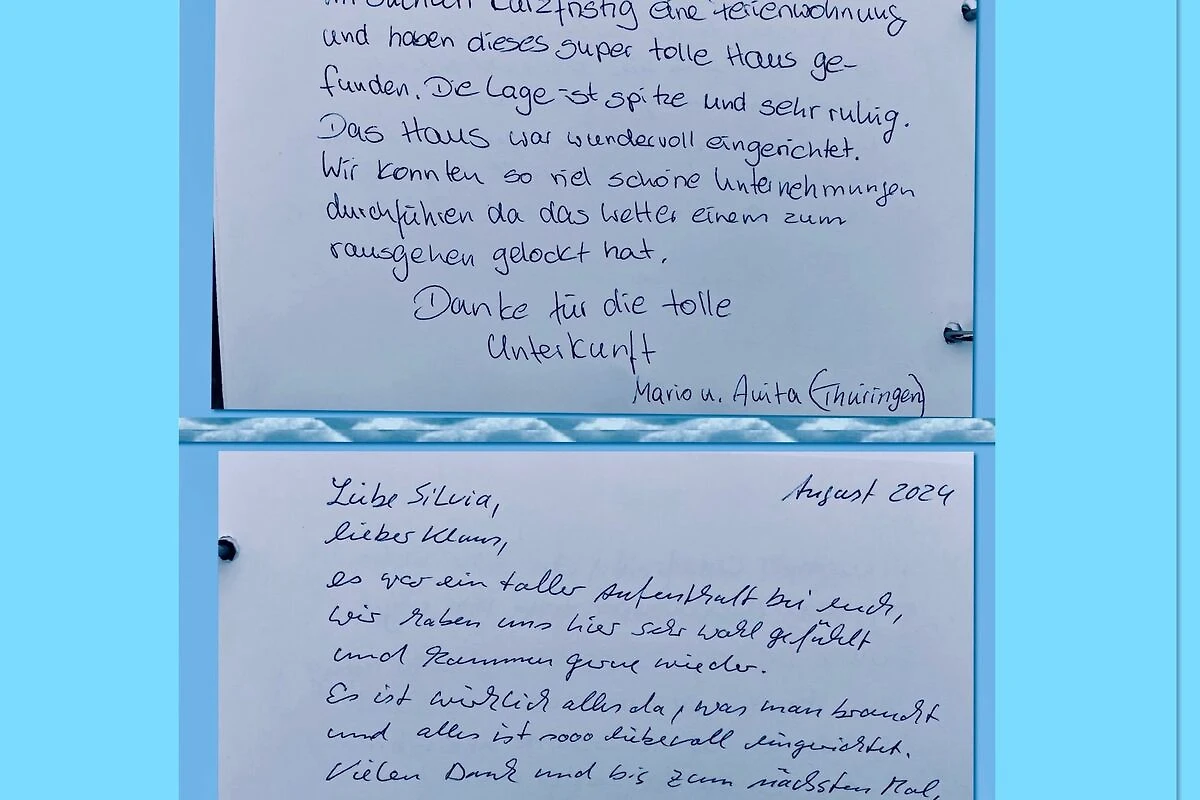 suchten kurzfristig eine Ferienwohnung
und haben dieses super tolle Haus ge-
funden. Die Lage ist spitze und sehr ruhig.
Das Haus war wundervoll eingerichtet.
Wir konnten so viel schöne Unternehmungen
durchführen da das Wetter einem zum
rausgehen gelockt hat.
Danke für die tolle
Unterkunft
Mario u. Anita (Thüringen)
Liebe Silvia,
August 2024
lieber Klaus,
es war ein toller Aufenthalt bei euch,
wir haben uns hier sehr wohl gefühlt
und kommen gerne wieder.
Es ist wirklich alles da, was man braucht
und alles ist sooo liebevoll eingerichtet.
Vielen Dank und bis zum nächsten Mal,